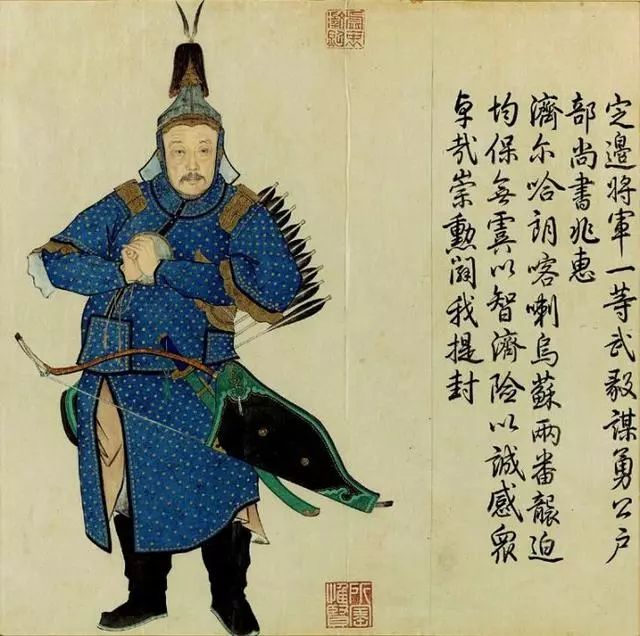 定邊將軍一等武毅謀勇公戶
部尚書兆惠
濟尔哈朗喀喇烏蘇兩番襲迫
均保無虞以智濟險以誠感衆
卓哉崇勳闢我提封
所寶惟賢